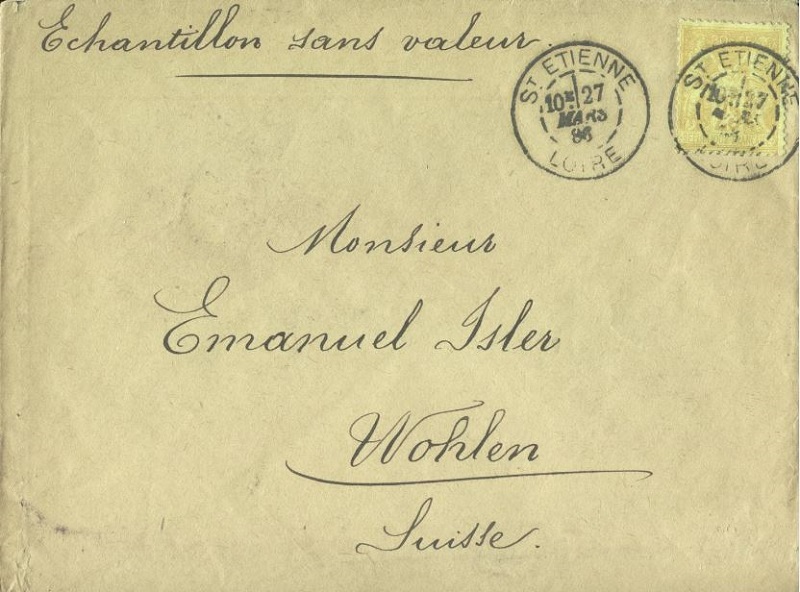 Echantillon sans valeur.
ST ETIENNE
10E 27
MARS
86
LOIRE
ST ETIENNE
10E 27
LOIRE
Monsieur
Emanuel Isler
Wohlen
Suisse.